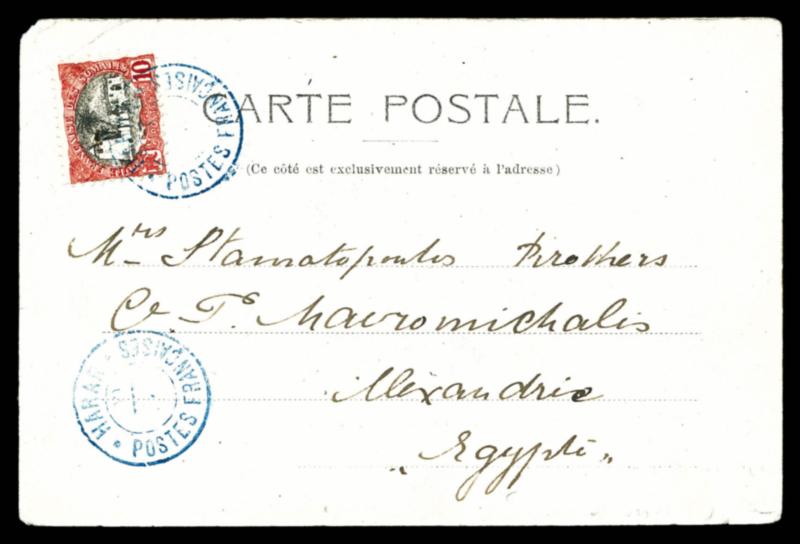 10
POSTES FRANÇAISES
CARTE POSTALE.
(Ce côté est exclusivement réservé à l'adresse)
Mrs Stamatopoulos Brothers
Mavromichalis
Alexandrie
„Egypte"
HARAR * POSTES FRANÇAISES *